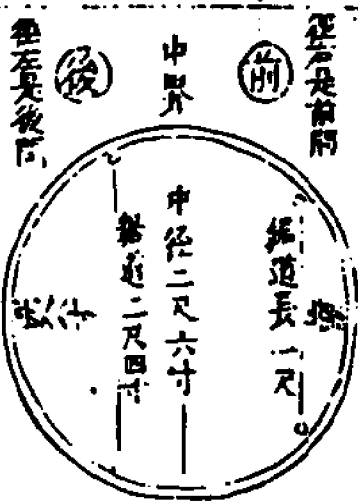 徑右是前問
前
中界
後
徑左是後問
鋸道長一尺
中徑二尺六寸
鋸道二尺四寸